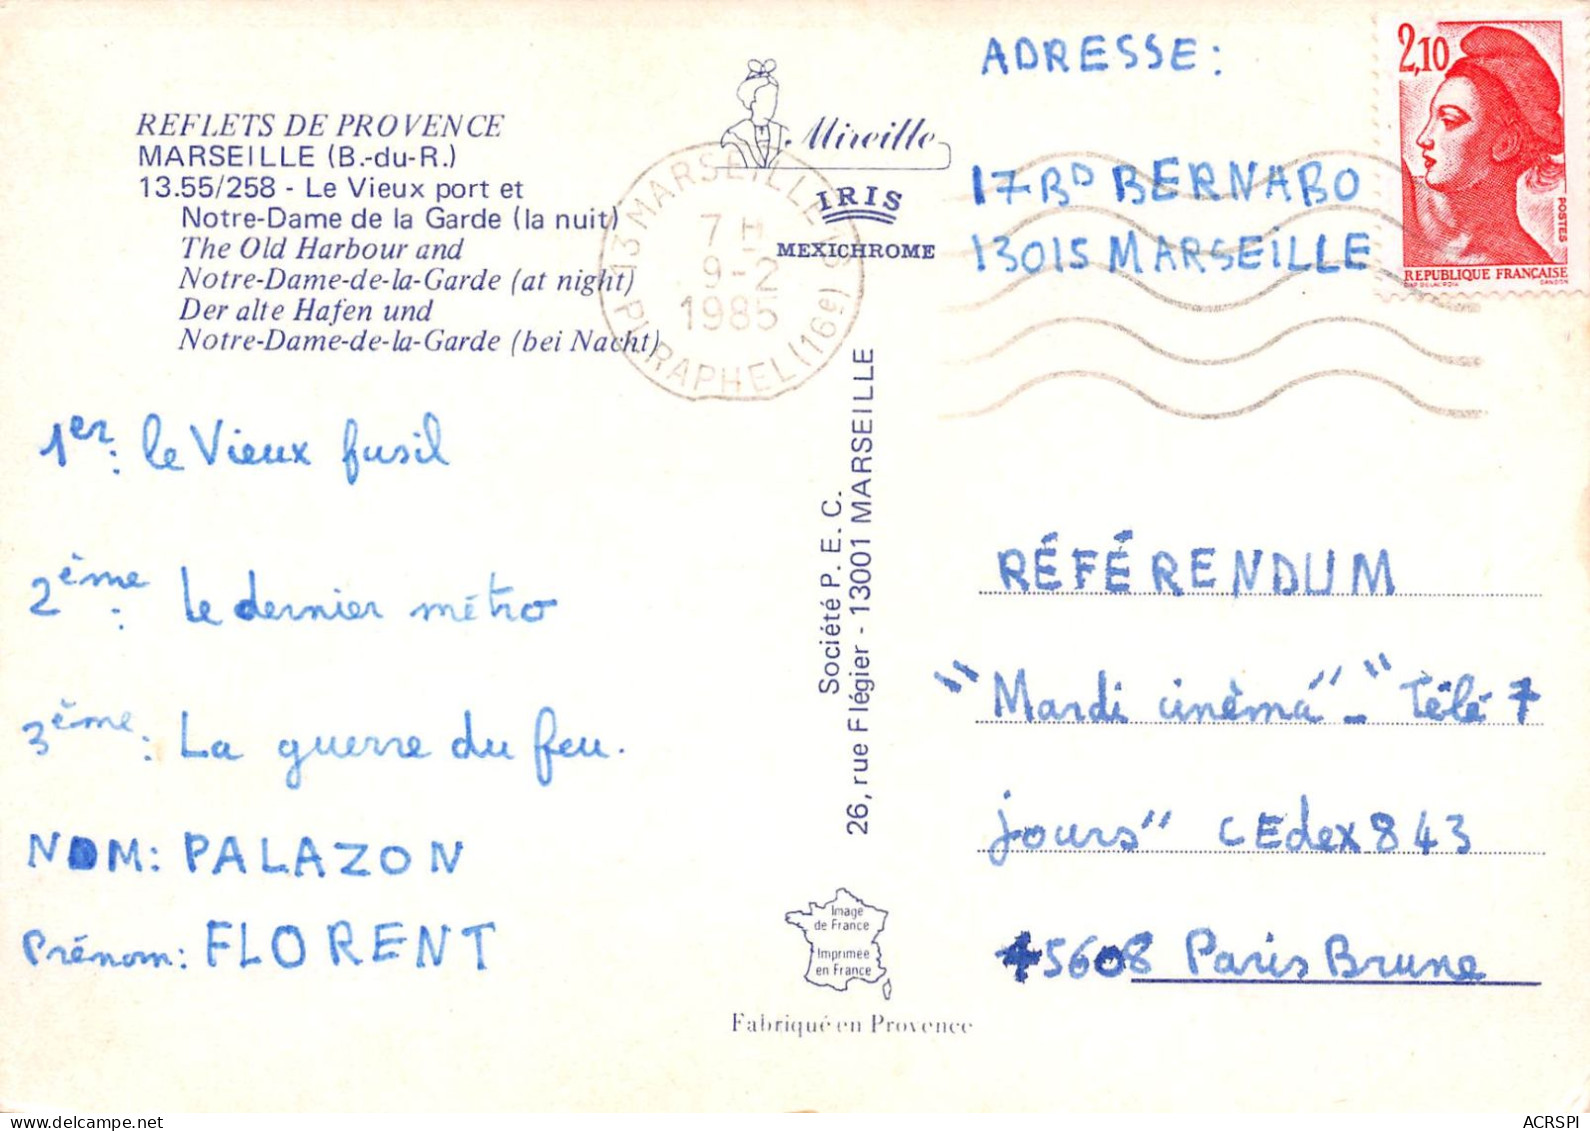 REFLETS DE PROVENCE
MARSEILLE (B.-du-R.)
13.55/258 - Le Vieux port et
Notre-Dame de la Garde (la nuit)
The Old Harbour and
Notre-Dame-de-la-Garde (at night)
Der alte Hafen und
Notre-Dame-de-la-Garde (bei Nacht)
1er: le Vieux fusil
2ème: Le dernier métro
3ème: La guerre du feu.
NOM: PALAZON
Prénom: FLORENT
Mireille
IRIS
MEXICHROME
13 MARSEILLE
7 H
9-2
1985
RAPHEL (16e)
Société P. E. C.
26, rue Flégier - 13001 MARSEILLE
Image
de France
Imprimée
en France
Fabriqué en Provence
ADRESSE:
17 BD BERNABO
13015 MARSEILLE
2,10
POSTES
REPUBLIQUE FRANÇAISE
GANDON
RÉFÉRENDUM
"Mardi cinéma" - "Télé 7
jours" CEdex 843
75608 Paris Brune
ACRSPI